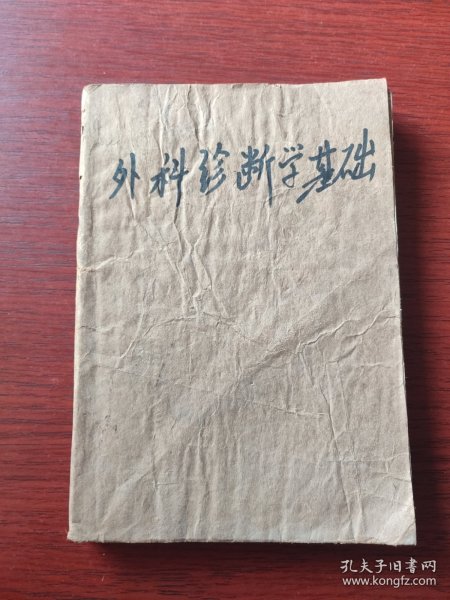 外科诊断学基础
孔夫子旧书网
www.kongfz.com